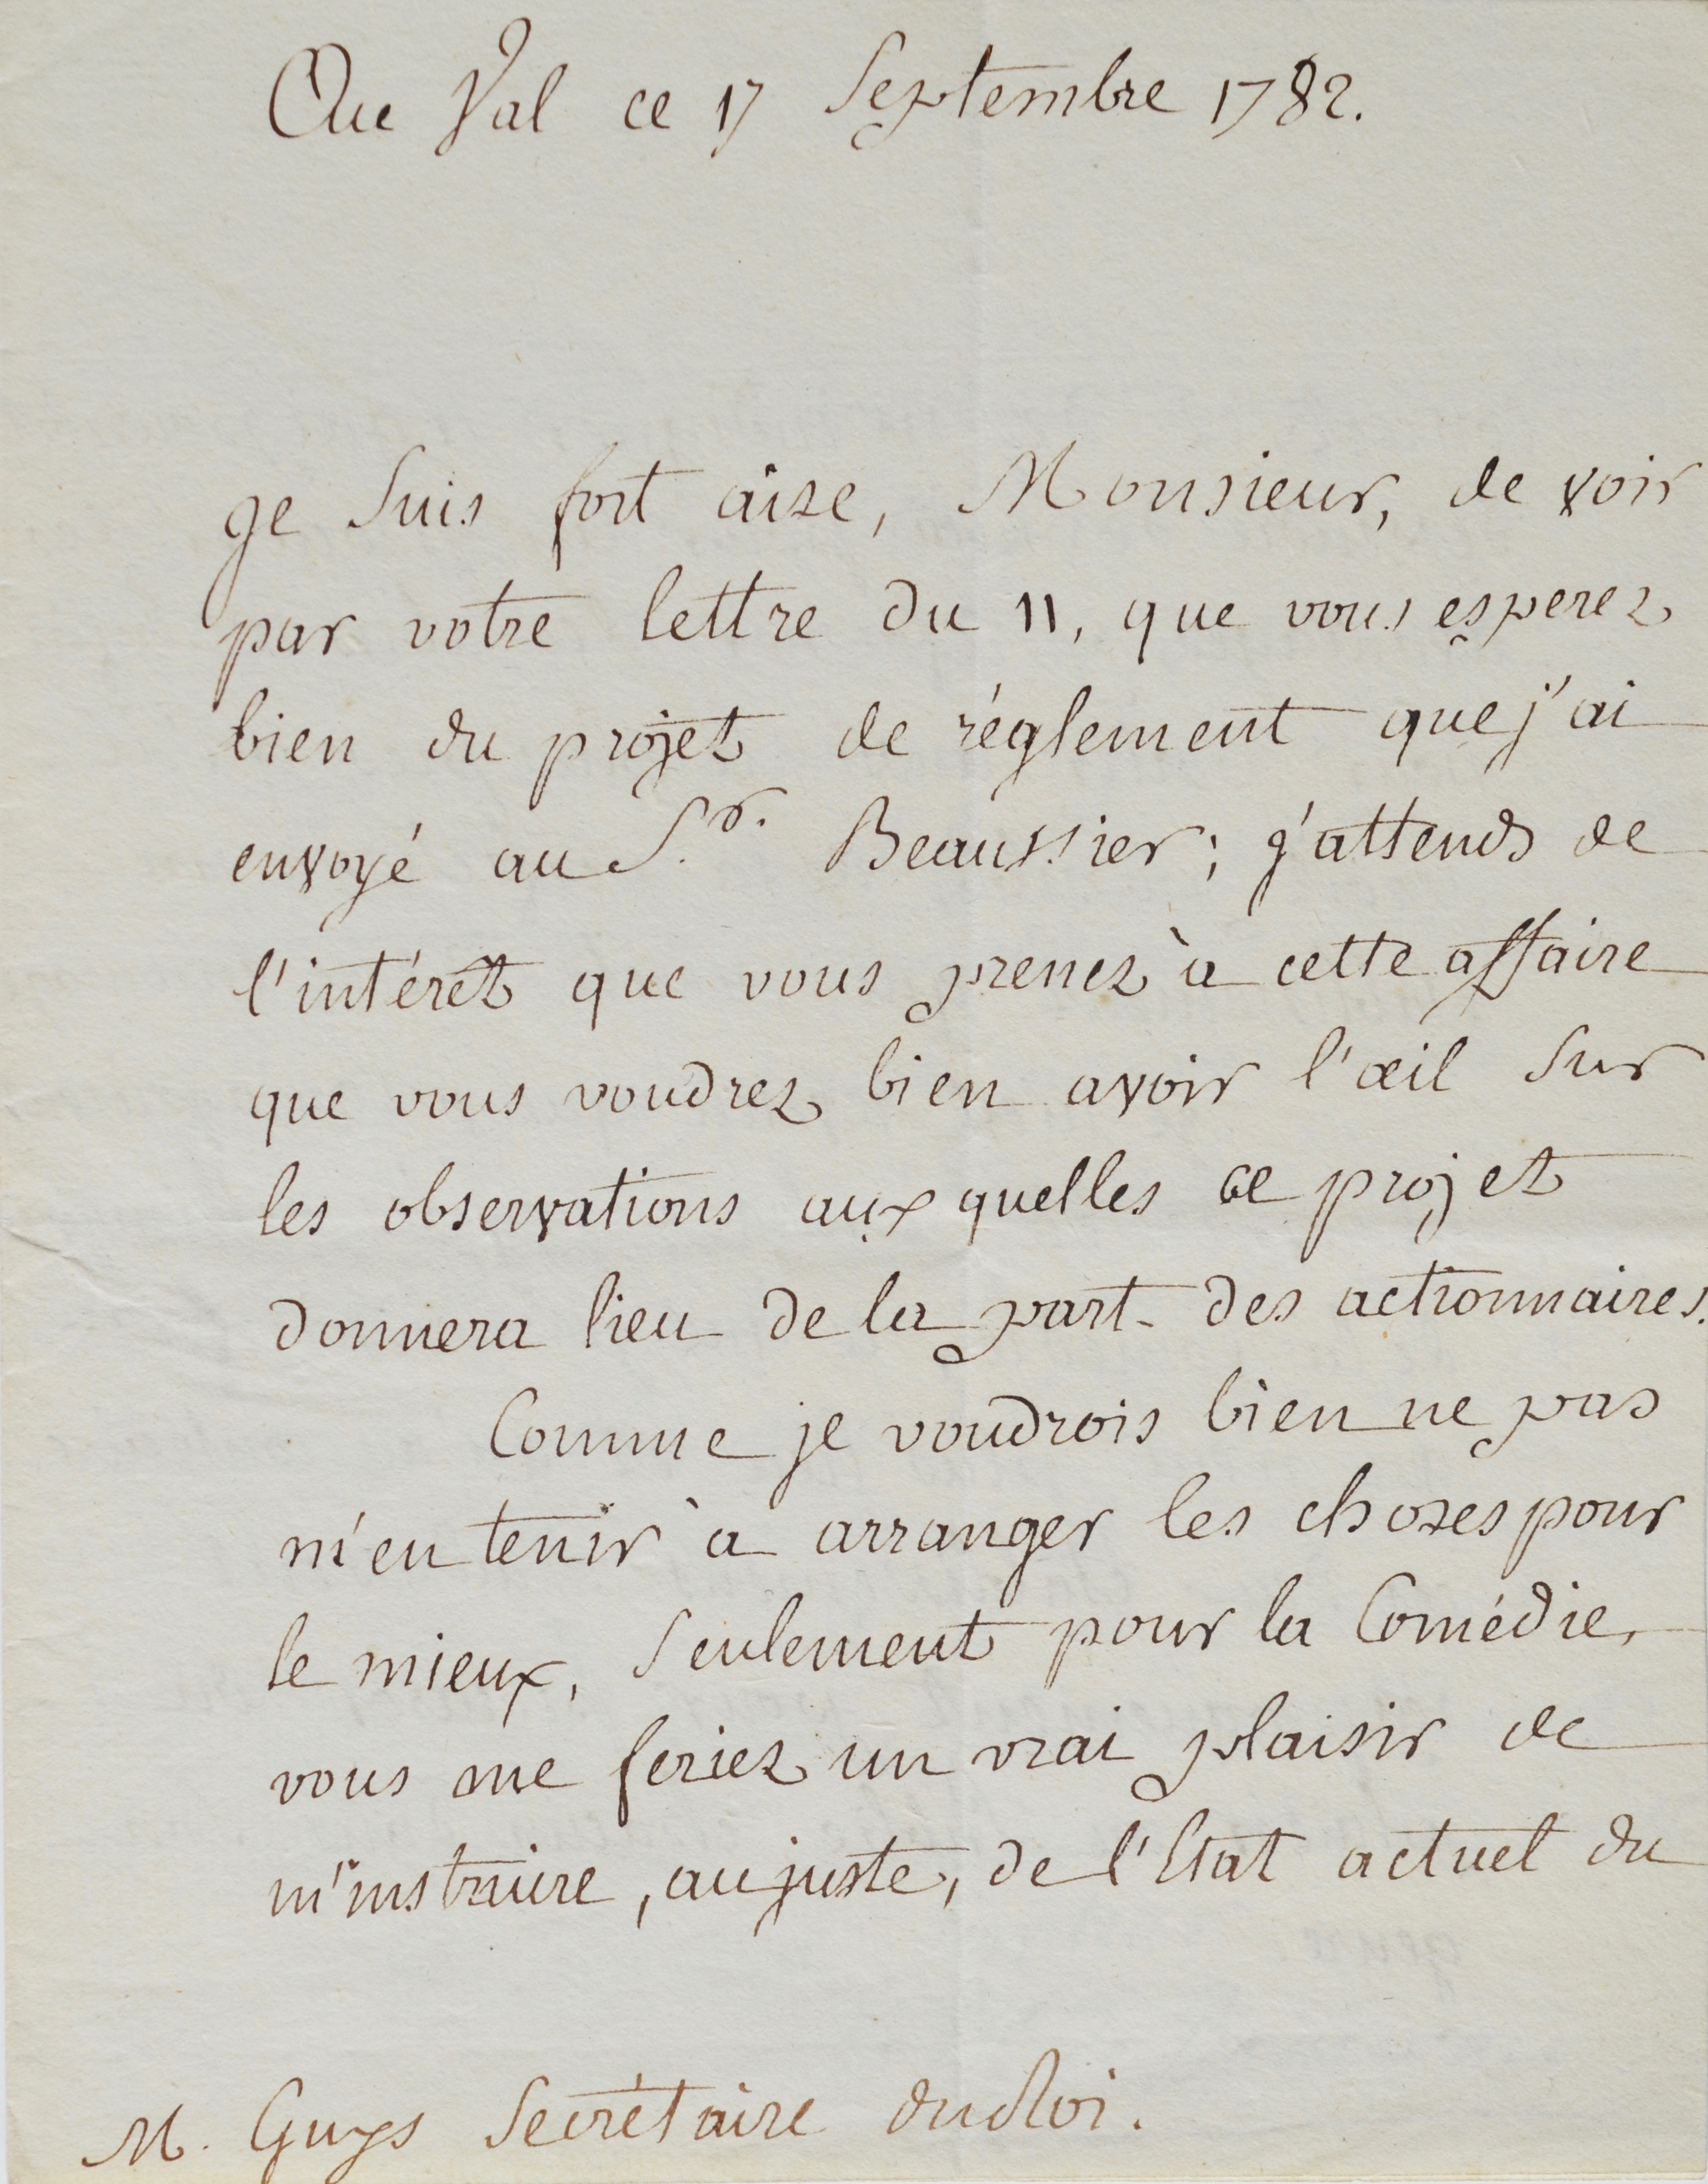 Au Val ce 17 Septembre 1782.
je suis fort aise, Monsieur, de voir
par votre lettre du 11, que vous esperez
bien du projet de réglement que j'ai
envoyé au S.r Beaussier; j'attends de
l'intérêt que vous prenez à cette affaire
que vous voudrez bien avoir l'œil sur
les observations aux quelles ce projet
donnera lieu de la part des actionnaires.
Comme je voudrois bien ne pas
m'en tenir à arranger les choses pour
le mieux, seulement pour la Comédie,
vous me feriez un vrai plaisir de
m'instruire, au juste, de l'Etat actuel du
M. Guys Secrétaire du Roi.